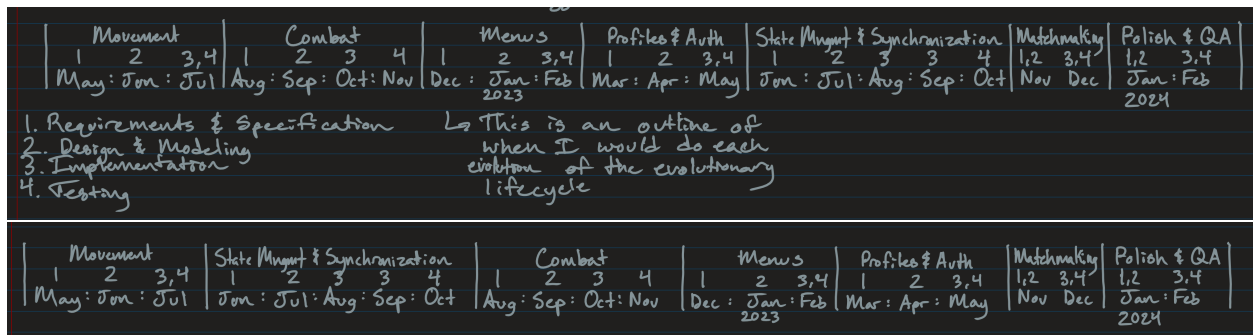 Movement Combat Menus Profiles & Auth State Mngmt & Synchronization Matchmaking Polish & QA
1 2 3,4 1 2 3 4 1 2 3,4 1 2 3,4 1 2 3 3 4 1,2 3,4 1,2 3,4
May: Jon: Jul Aug: Sep: Oct: Nov Dec: Jan: Feb Mar: Apr: May Jon: Jul: Aug: Sep: Oct Nov Dec Jan: Feb
2023 2024
1. Requirements & Specification ↳ This is an outline of
2. Design & Modeling when I would do each
3. Implementation evolution of the evolutionary
4. Testing lifecycle
Movement State Mngmt & Synchronization Combat Menus Profiles & Auth Matchmaking Polish & QA
1 2 3,4 1 2 3 3 4 1 2 3 4 1 2 3,4 1 2 3,4 1,2 3,4 1,2 3,4
May: Jon: Jul Jon: Jul: Aug: Sep: Oct Aug: Sep: Oct: Nov Dec: Jan: Feb Mar: Apr: May Nov Dec Jan: Feb
2023 2024